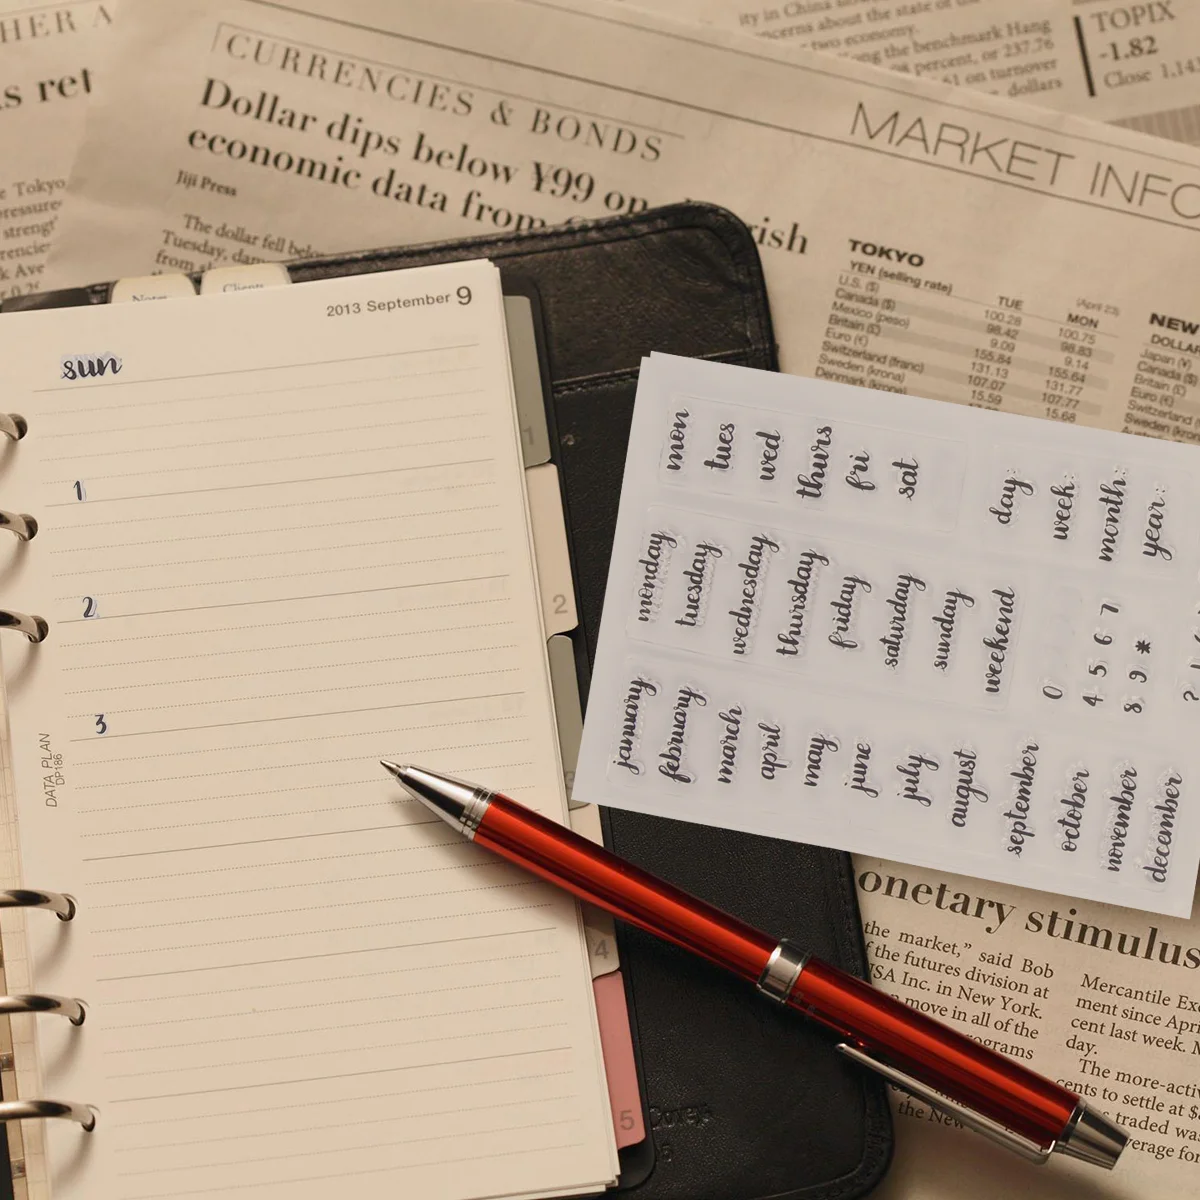 HER A
s ret
e Tokyo
ressure
strengt
k Ave
CURRENCIES & BONDS
Dollar dips below ¥99 on
rish
economic data from
Jiji Press
The dollar fell
Tuesday,
from
ity in China
ncerns about the state of the
two economy.
the benchmark Hang
percent, or 237.76
on turnover
dollars
TOPIX
-1.82
Close
MARKET INFO
TOKYO
YEN (selling rate)
(April 23)
TUE MON
U.S. ($) 100.28 100.75
Canada ($) 98.42 98.83
Mexico (peso) 9.09 9.14
Britain (£) 155.84 155.64
Euro (€) 131.13 131.77
Switzerland (franc) 107.07 107.77
Sweden (krona) 15.59 15.68
Denmark (krone)
NEW
DOLLAR
Japan (¥)
Canada ($)
Britain (£)
Euro (€)
Switzerland
Sweden (kro
Notes
Clients
2013 September 9
sun
1
2
3
DATA PLAN
DP186
1
2
3
4
5
mon
tues
wed
thurs
fri
sat
day:
week:
month:
year:
monday
tuesday
wednesday
thursday
friday
saturday
sunday
weekend
0
4 5 6 7
8 9 *
?
january
february
march
april
may
june
july
august
september
october
november
december
onetary stimulus
the market,” said Bob
f the futures division at
JSA Inc. in New York.
move in all of the
rograms
the New
Mercantile Exc
ment since Apri
cent last week. M
day.
The more-activ
cents to settle at $
traded was
verage for